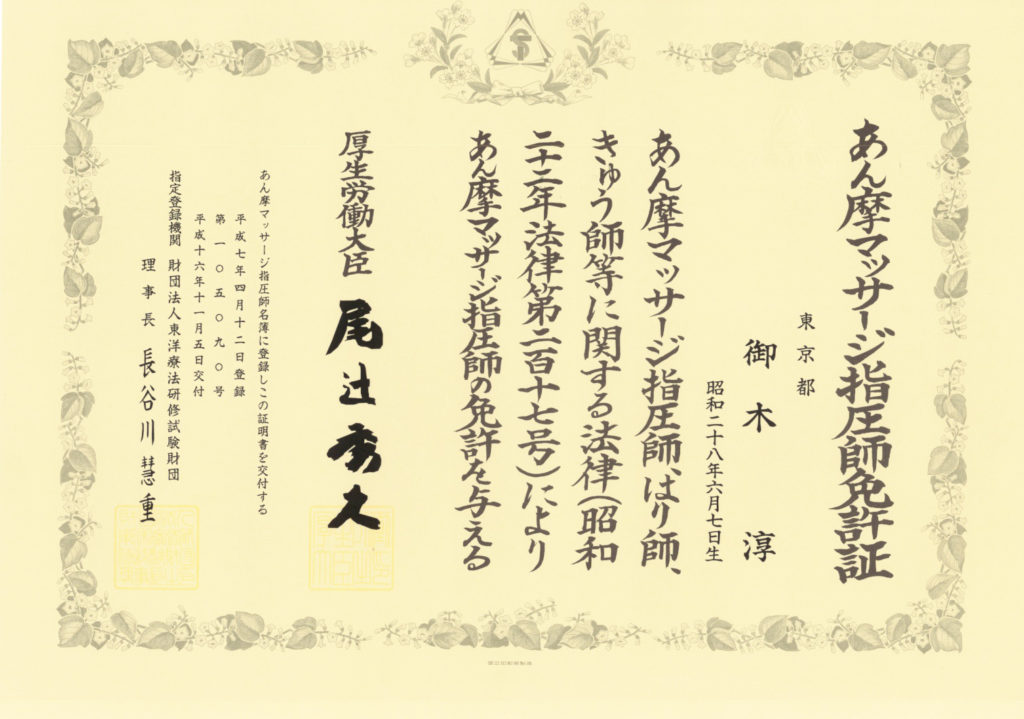 あん摩マッサージ指圧師免許証
東京都
御木 淳
昭和二十八年六月七日生
あん摩マッサージ指圧師、はり師、
きゅう師等に関する法律(昭和
二十二年法律第二百十七号)により
あん摩マッサージ指圧師の免許を与える
厚生労働大臣 尾辻秀久
あん摩マッサージ指圧師名簿に登録しこの証明書を交付する
平成七年四月十二日登録
第一〇五〇九〇号
平成十六年十一月五日交付
指定登録機関 財団法人東洋療法研修試験財団
理事長 長谷川慧重